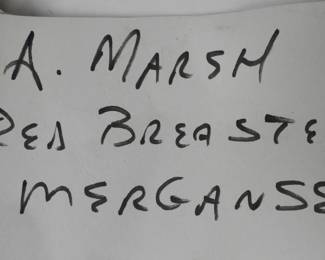 A. MARSH
RED BREASTE
MERGANSE